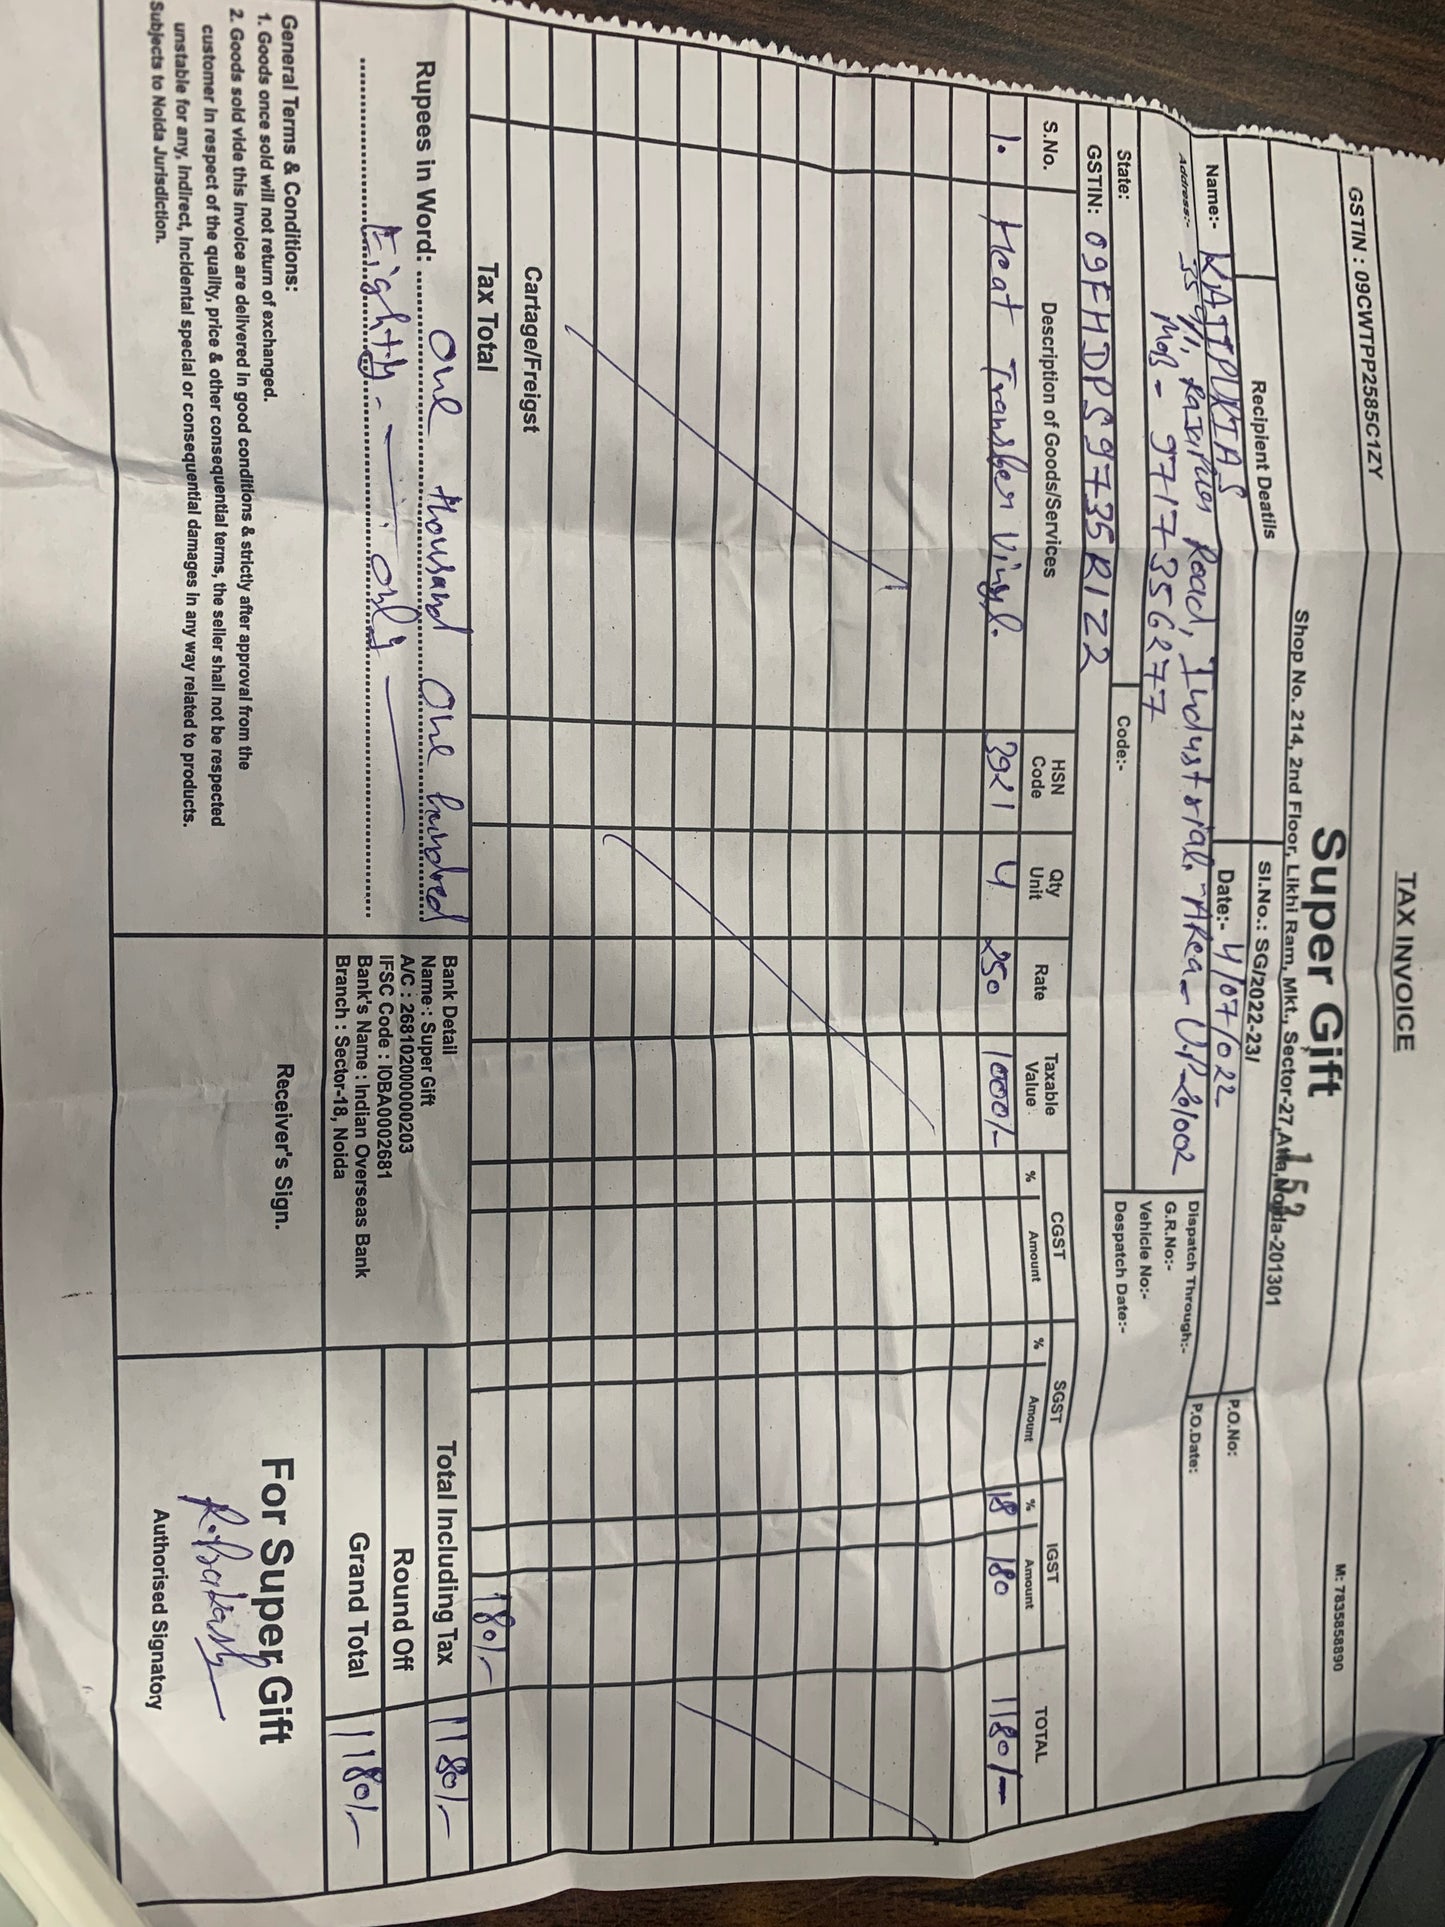 TAX INVOICE
GSTIN : 09CWTPP2585C1ZY
M: 7835858890
Super Gift
Shop No. 214, 2nd Floor, Likhi Ram, Mkt., Sector-27, Atta, Noida-201301
Recipient Deatils
SI.No.: SG/2022-23/ 152
P.O.No:
Name:- KATTPUKIAS
Date:- 4/07/022
P.O.Date:
Address:- Road, Industrial Area - U.P 201002
Mob - 9717356277
Dispatch Through:-
G.R.No:-
Vehicle No:-
State:
Code:-
Despatch Date:-
GSTIN: 09FHDPS9735R1Z2
S.No. Description of Goods/Services HSN Code Qty Unit Rate Taxable Value CGST % Amount SGST % Amount IGST % Amount TOTAL
1. Heat Transber Vinyl. 3921 4 250 1000/- 18 180 1180/-
Cartage/Freigst
Tax Total 180/-
Rupees in Word: One thousand One hundred
Eighty - only
Bank Detail
Name : Super Gift
A/C : 268102000000203
IFSC Code : IOBA0002681
Bank's Name : Indian Overseas Bank
Branch : Sector-18, Noida
Total Including Tax 1180/-
Round Off
Grand Total 1180/-
General Terms & Conditions:
1. Goods once sold will not return of exchanged.
2. Goods sold vide this invoice are delivered in good conditions & strictly after approval from the
customer in respect of the quality, price & other consequential terms, the seller shall not be respected
unstable for any, indirect, incidental special or consequential damages in any way related to products.
Subjects to Noida Jurisdiction.
Receiver's Sign.
For Super Gift
Authorised Signatory